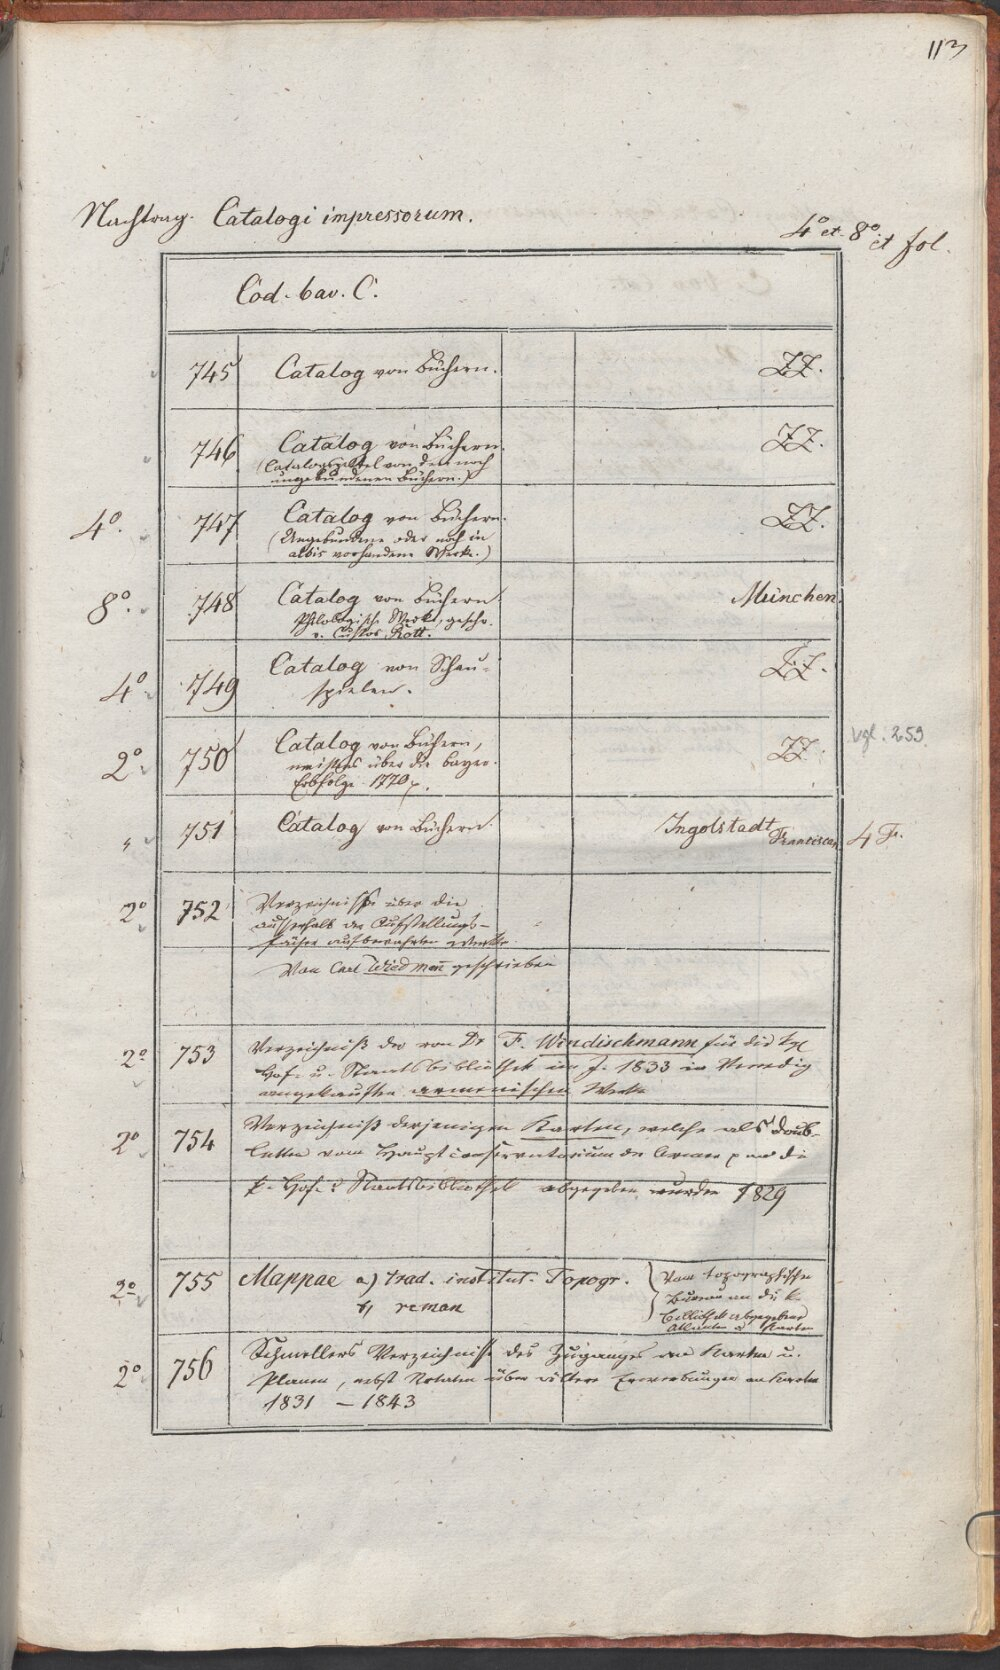 113
Nachtrag. Catalogi impressorum.
4° et 8° et fol.
Cod. bav. C.
745 Catalog von Büchern. ZZ.
746 Catalog von Büchern. ZZ.
(Catalogszettel von den noch
ungebundenen Büchern.)
4°. 747 Catalog von Büchern. ZZ.
(Ungebundene oder noch in
albis vorhandene Werke.)
8°. 748 Catalog von Büchern München.
Philologische Werke, geschr.
v. Custos Rott.
4° 749 Catalog von Schau- ZZ.
spielen.
2° 750 Catalog von Büchern, ZZ. vgl. 259.
meistens über die bayer.
Erbfolge 1770
" 751 Catalog von Büchern. Ingolstadt Franciscan. 4 Fr.
2° 752 Verzeichniss über die
ausserhalb der Aufstellungs-
fächer aufbewahrten Werke
Von Carl Widmann geschrieben
2° 753 Verzeichniß der von Dr F. Windischmann für die kgl
Hof- u. Staatsbibliothek im J. 1833 in Venedig
angekauften armenischen Werke
2° 754 Verzeichniß derjenigen Karten, welche als Doub-
letten vom Hauptconservatorium der Armee an die
k. Hof- & Staatsbibliothek abgegeben wurden 1829
2° 755 Mappae a) trad. institut. Topogr.
b) reman
Vom topographischen
Bureau an die k.
Bibliothek abgegebene
Atlanten u Karten
2° 756 Schmellers Verzeichniss des Zuganges an Karten u.
Planen, nebst Notaten über ältere Erwerbungen an Karten
1831 – 1843